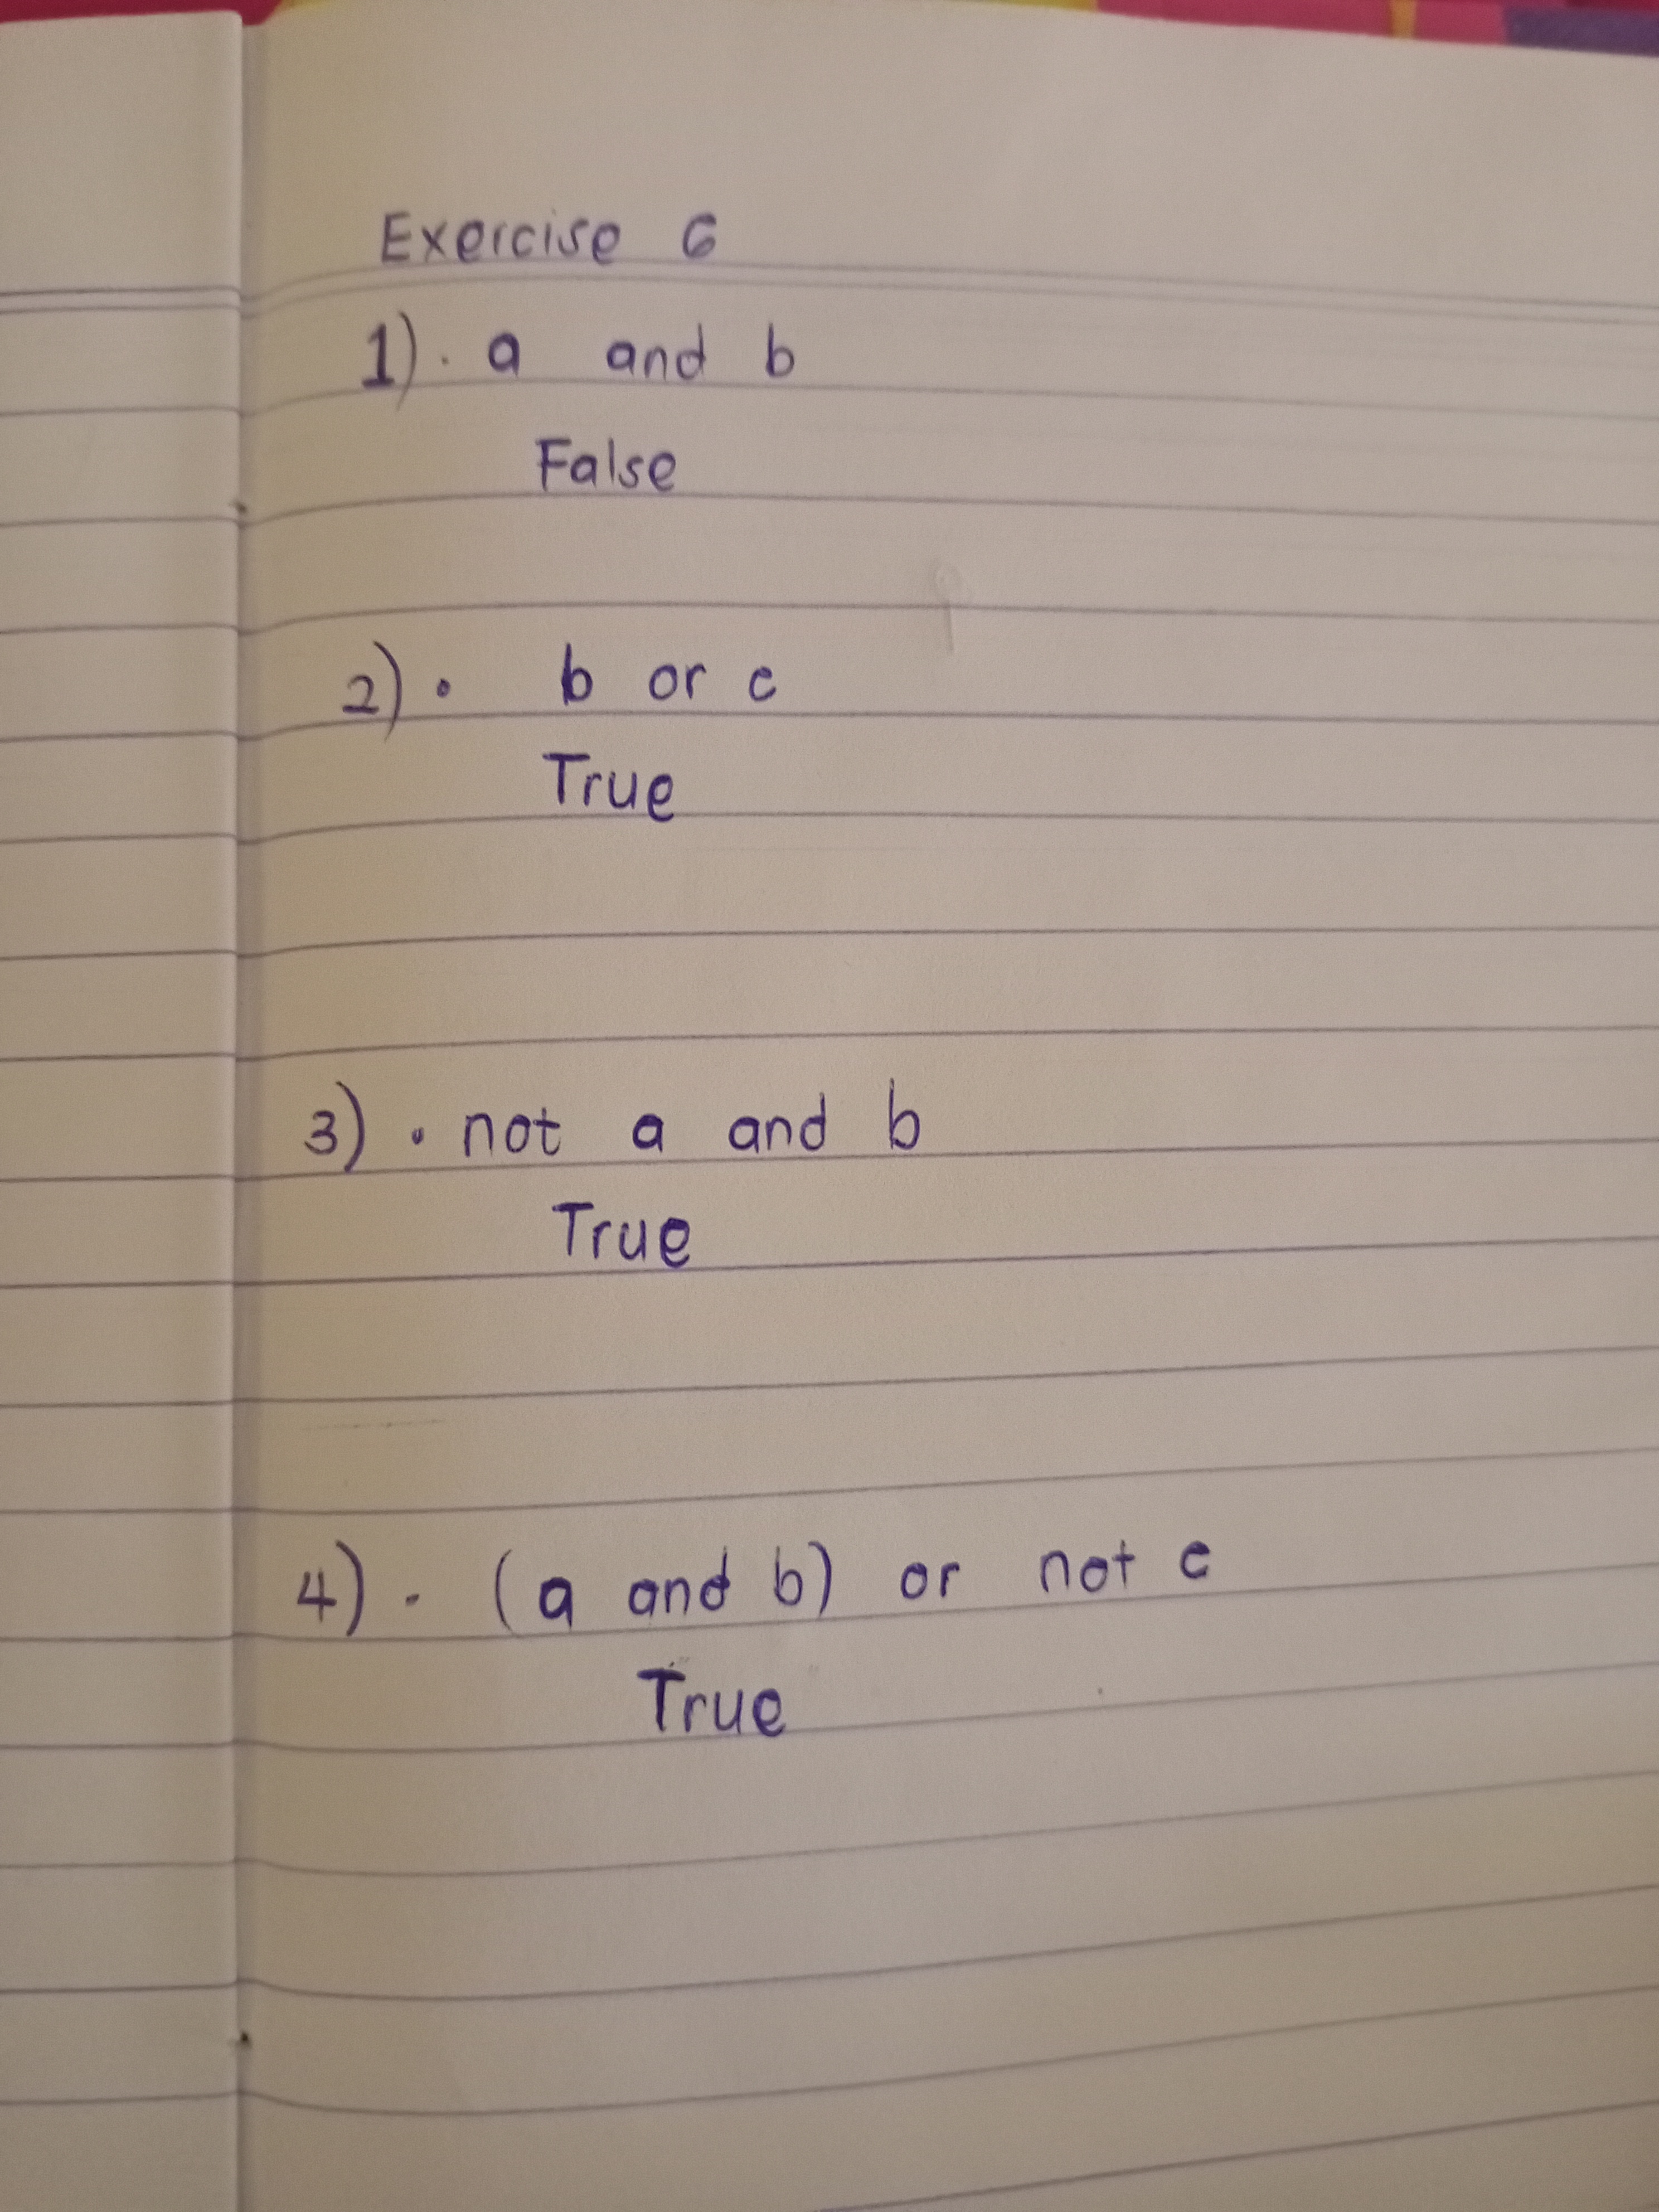 Exercise 6
1) . a and b
False
2) . b or c
True
3) . not a and b
True
4) . (a and b) or not c
True